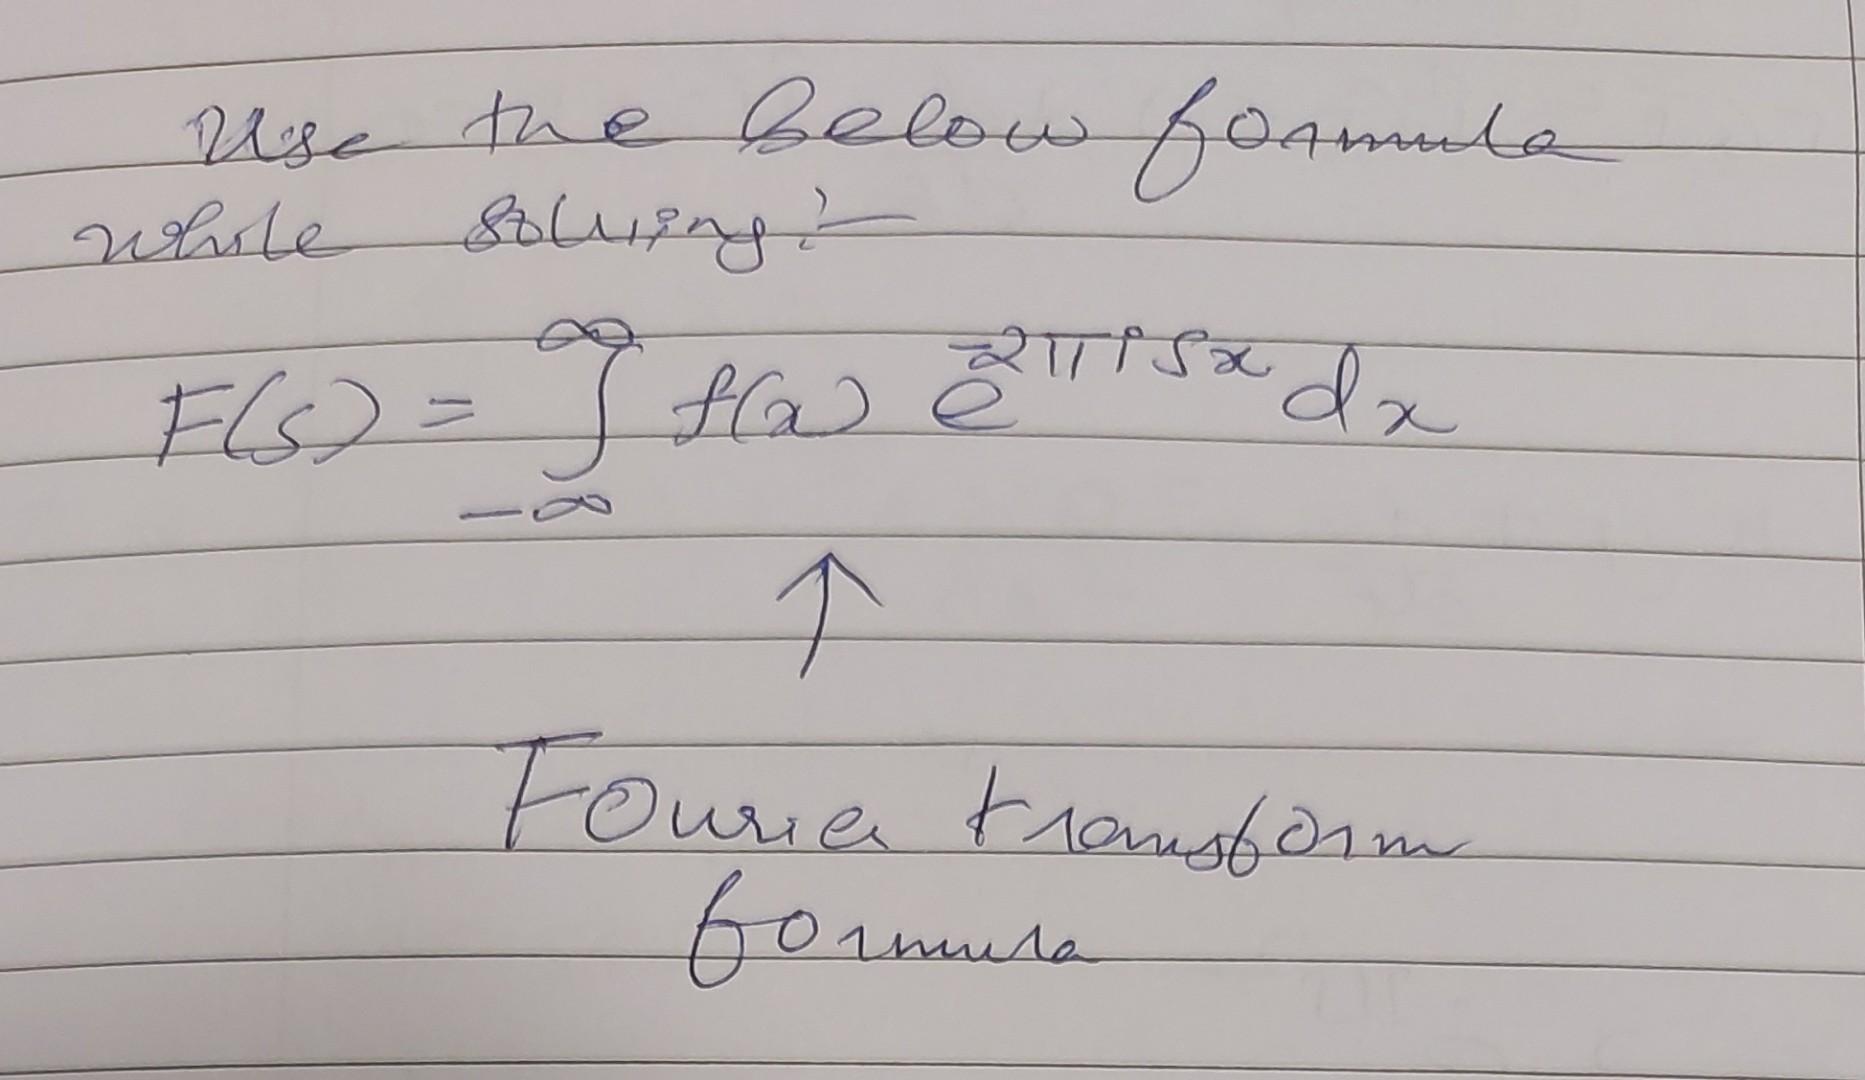 Use the below formula
while solving:-
F(s) = ∫_{-∞}^{∞} f(x) e^{-2πisx} dx
↑
Fourier transform
formula